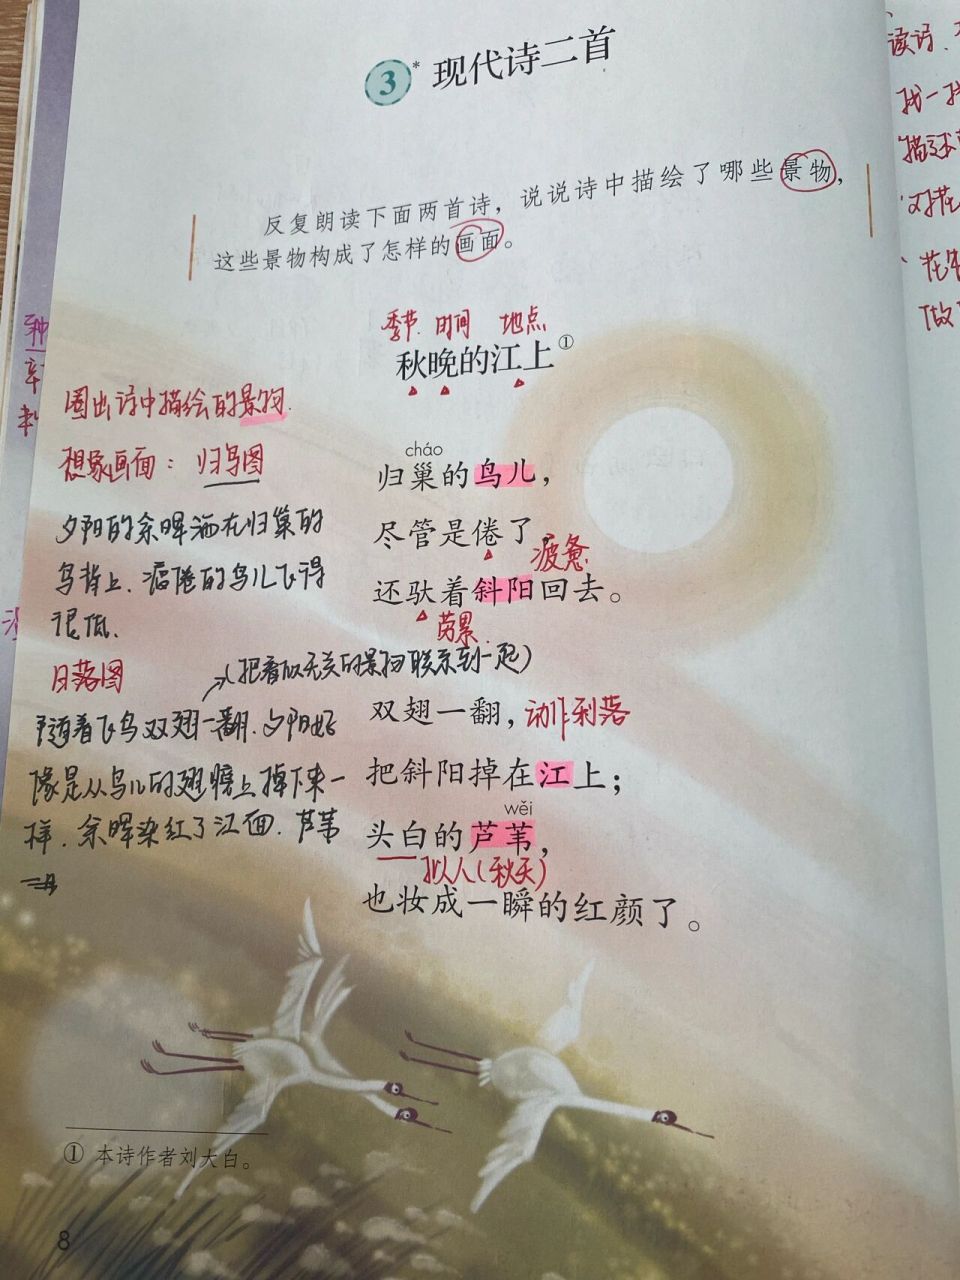 3* 现代诗二首
反复朗读下面两首诗，说说诗中描绘了哪些景物，
这些景物构成了怎样的画面。
季节 时间 地点
秋晚的江上①
圈出诗中描绘的景物.
想象画面：归鸟图
夕阳的余晖洒在归巢的
鸟背上.疲倦的鸟儿飞得
很低.
日落图
(把看似无关的景物联系到一起)
随着飞鸟双翅一翻.夕阳好
像是从鸟儿的翅膀上掉下来一
样.余晖染红了江面.芦苇
cháo
归巢的鸟儿，
尽管是倦了，
疲惫
还驮着斜阳回去。
劳累.
双翅一翻，动作利落
把斜阳掉在江上；
wěi
头白的芦苇，
拟人(秋天)
也妆成一瞬的红颜了。
① 本诗作者刘大白。
8
读诗.
找一找
描述
对花
花
做